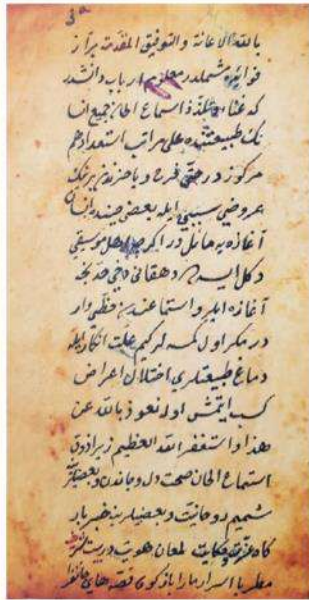 بالله الاعانة والتوفيق المقدمة براز
فوائده مشتملدر معلوم ارباب دانشدر
كه غنا وتلذذ استماع الحان جميع انسا
نك طبيعتنده على مراتب استعدادهم
مركوز در حتى فرح و يا حزندن برينك
عروضى سببى ايله بعضى
آغازه يه مائلدر اكرچه اهل موسيقى
دكل ايسه دهقانى داخى
آغازه ايلر واستماعندن حظى وار
در مكر اول كمسه لر كيم علت ايله
دماغ طبيعتلرى اختلال اعراض
كسب ايتمش اوله نعوذ بالله عن
هذا واستغفر الله العظيم زيرا ذوق
استماع الحان صحت دل و جاندن وبعضيلر
شميم روحانيت وبعضيلرينه خبر يار
كاه و حكايت لمعان هويت
معلم با اسرار ماراباز كوى قصه هاى جانفزا